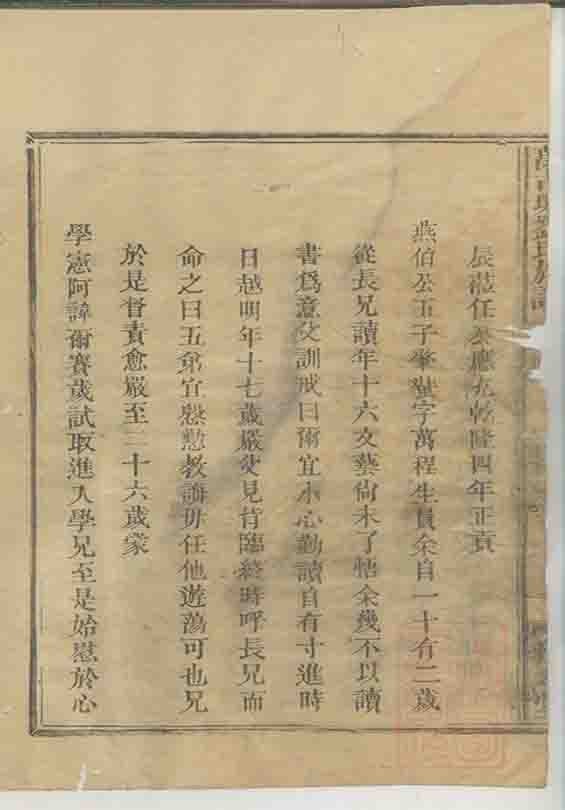 辰蒞任公應充乾隆四年正貢
燕伯公五子肇鵉字萬程生員余自一十有二歲
從長兄讀年十六文藝尙未了悟余幾不以讀
書爲意父訓戒曰爾宜小心勤讀自有寸進時
日越明年十七歲嚴父見背臨終時呼長兄而
命之曰五弟宜懇懃教誨毋任他遊蕩可也兄
於是督責愈嚴至二十六歲蒙
學憲阿諱爾賽歲試取進入學兄至是始慰於心
氏族譜